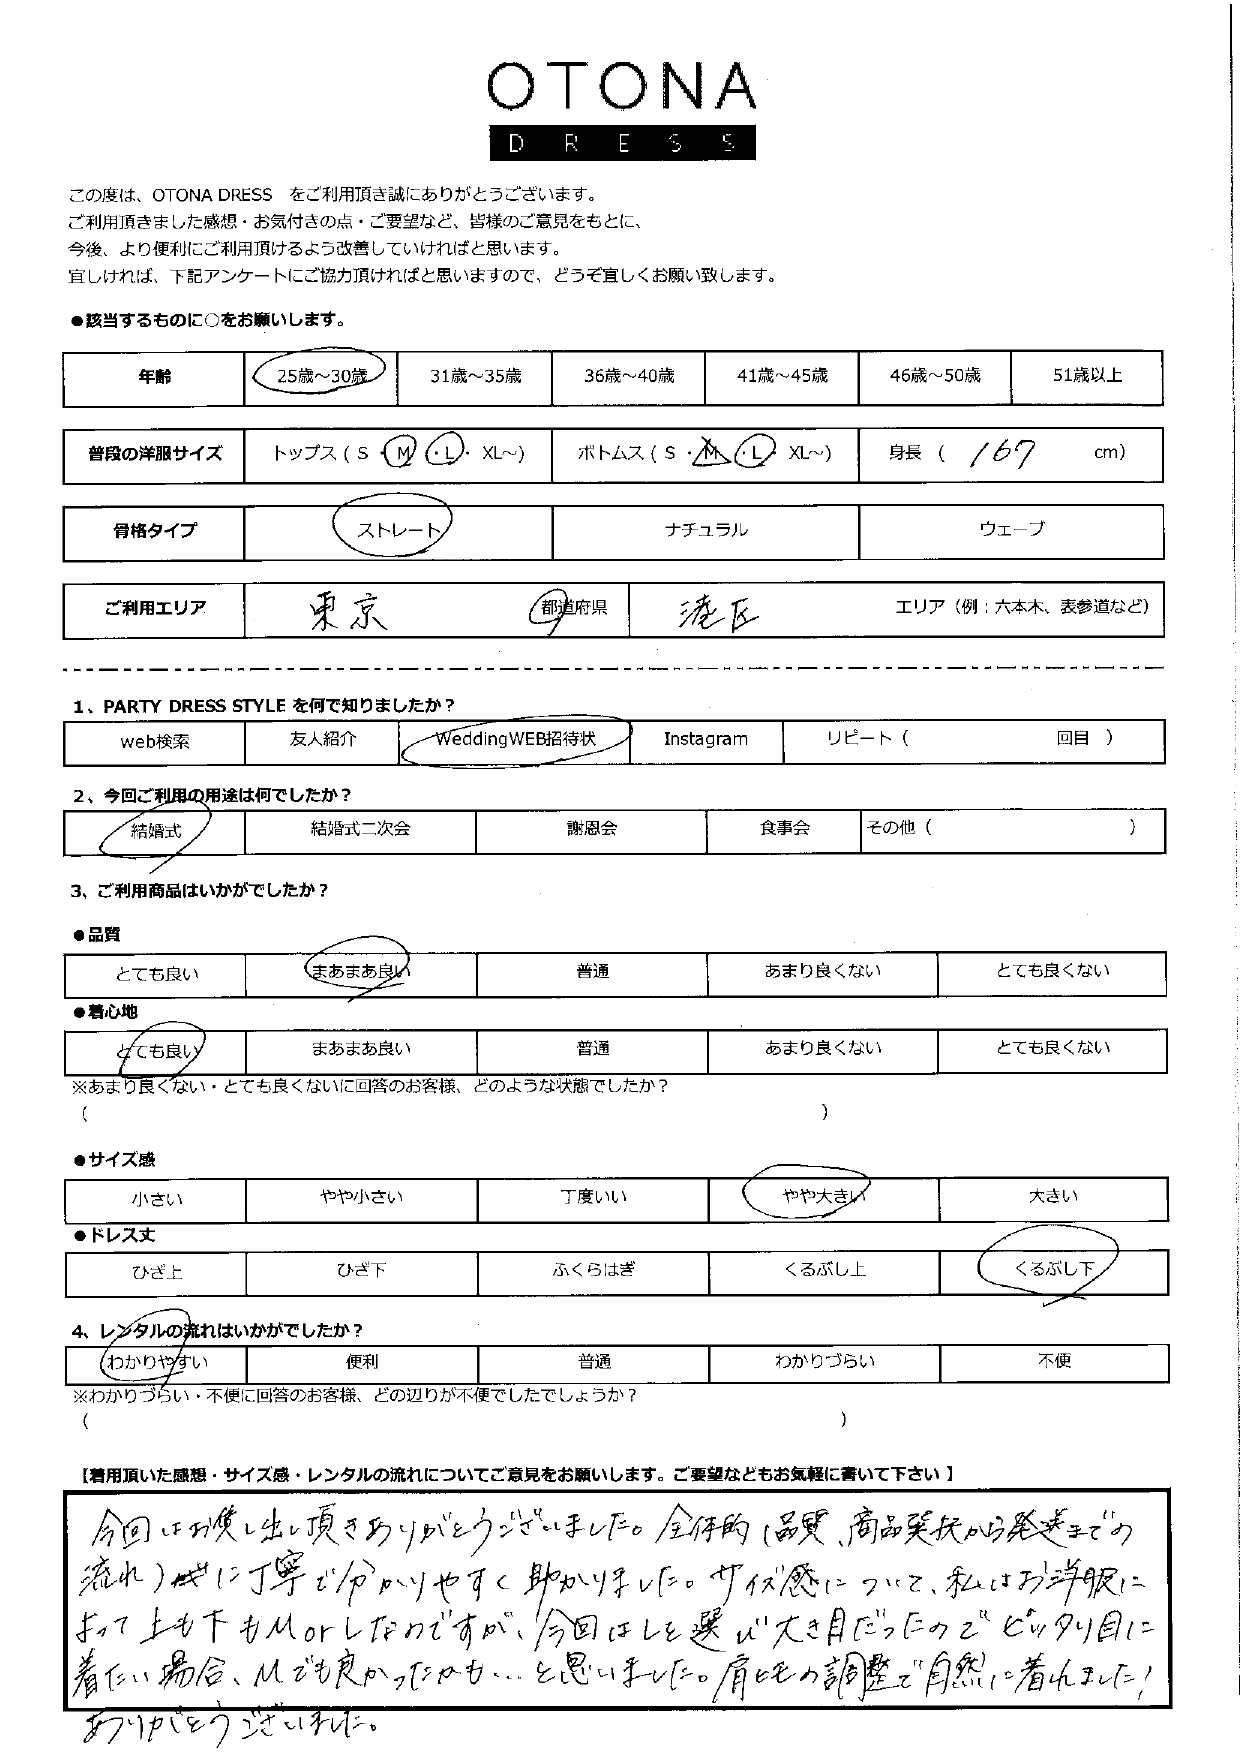 OTONA
DRESS
この度は、OTONA DRESS をご利用頂き誠にありがとうございます。
ご利用頂きました感想・お気付きの点・ご要望など、皆様のご意見をもとに、
今後、より便利にご利用頂けるよう改善していければと思います。
宜しければ、下記アンケートにご協力頂ければと思いますので、どうぞ宜しくお願い致します。
●該当するものに○をお願いします。
年齢 25歳～30歳 31歳～35歳 36歳～40歳 41歳～45歳 46歳～50歳 51歳以上
普段の洋服サイズ トップス ( S ・ M ・ L ・ XL～) ボトムス ( S ・ M ・ L ・ XL～) 身長 ( 167 cm)
骨格タイプ ストレート ナチュラル ウェーブ
ご利用エリア 東京 都道府県 港区 エリア（例：六本木、表参道など）
1、PARTY DRESS STYLE を何で知りましたか？
web検索 友人紹介 WeddingWEB招待状 Instagram リピート ( 回目 )
2、今回ご利用の用途は何でしたか？
結婚式 結婚式二次会 謝恩会 食事会 その他 ( )
3、ご利用商品はいかがでしたか？
●品質
とても良い まあまあ良い 普通 あまり良くない とても良くない
●着心地
とても良い まあまあ良い 普通 あまり良くない とても良くない
※あまり良くない・とても良くないに回答のお客様、どのような状態でしたか？
( )
●サイズ感
小さい やや小さい 丁度いい やや大きい 大きい
●ドレス丈
ひざ上 ひざ下 ふくらはぎ くるぶし上 くるぶし下
4、レンタルの流れはいかがでしたか？
わかりやすい 便利 普通 わかりづらい 不便
※わかりづらい・不便に回答のお客様、どの辺りが不便でしたでしょうか？
( )
【着用頂いた感想・サイズ感・レンタルの流れについてご意見をお願いします。ご要望などもお気軽に書いて下さい 】
今回はお貸し出し頂きありがとうございました。全体的（品質、商品選択から発送までの
流れ）に丁寧で分かりやすく助かりました。サイズ感について、私はお洋服に
よって上も下もMorLなのですが、今回はLを選び大き目だったのでピッタリ目に
着たい場合、Mでも良かったかも…と思いました。肩ヒモの調整で自然に着れました！
ありがとうございました。